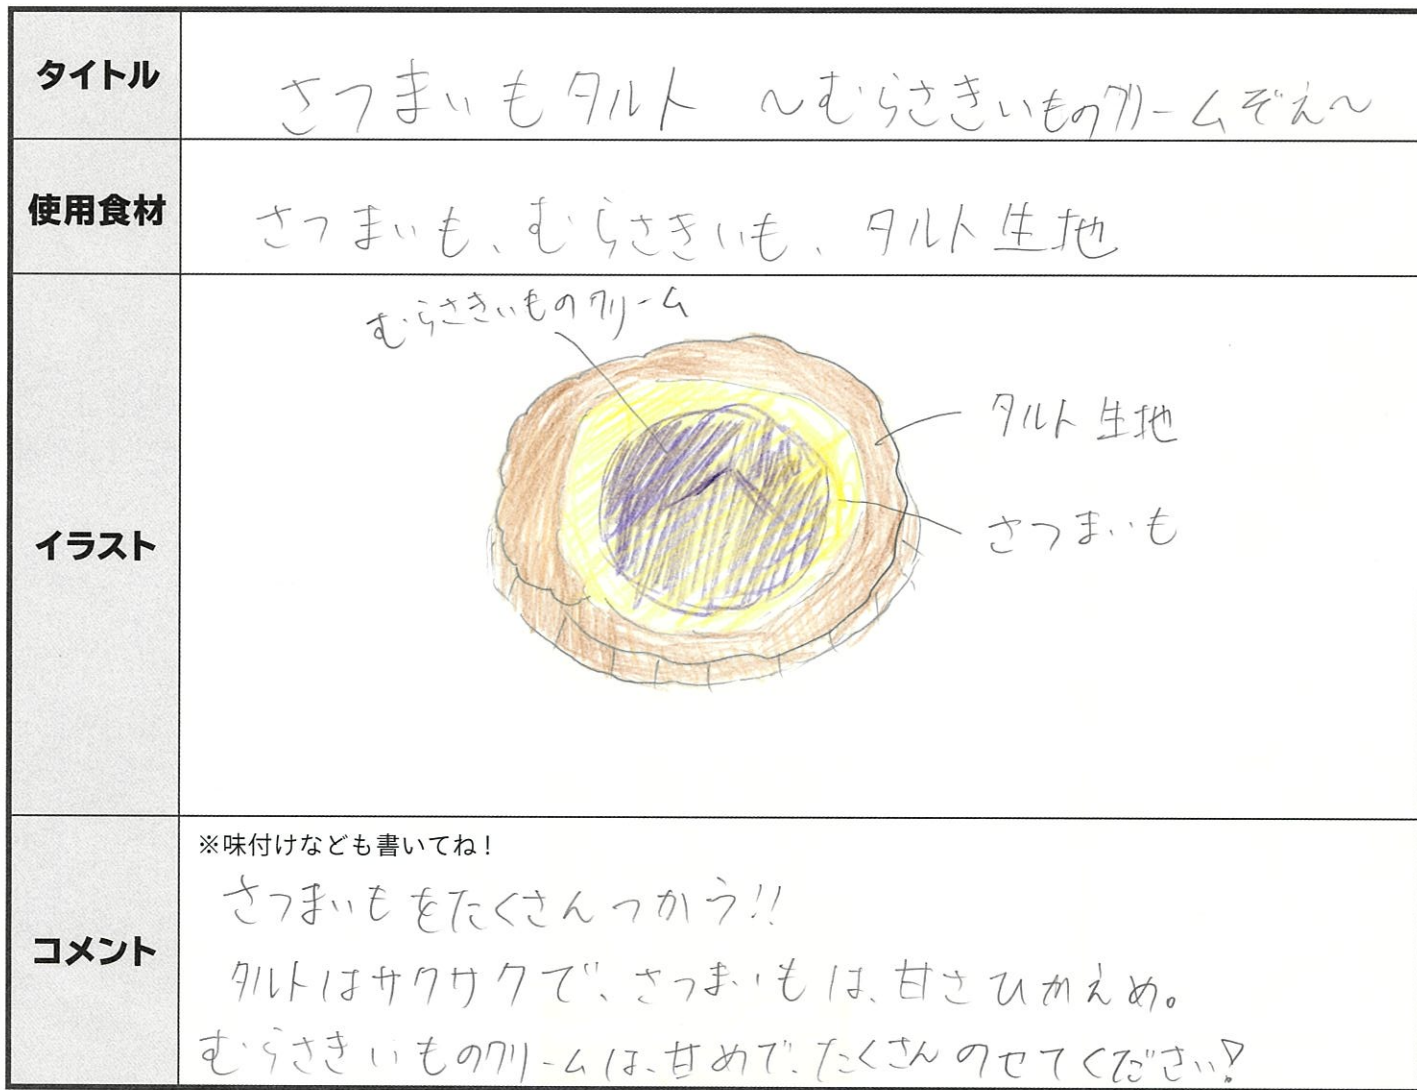 タイトル
さつまいもタルト ～むらさきいものクリームぞえ～
使用食材
さつまいも、むらさきいも、タルト生地
イラスト
むらさきいものクリーム
タルト生地
さつまいも
コメント
※味付けなども書いてね！
さつまいもをたくさんつかう!!
タルトはサクサクで、さつまいもは、甘さひかえめ。
むらさきいものクリームは、甘めで、たくさんのせてください!